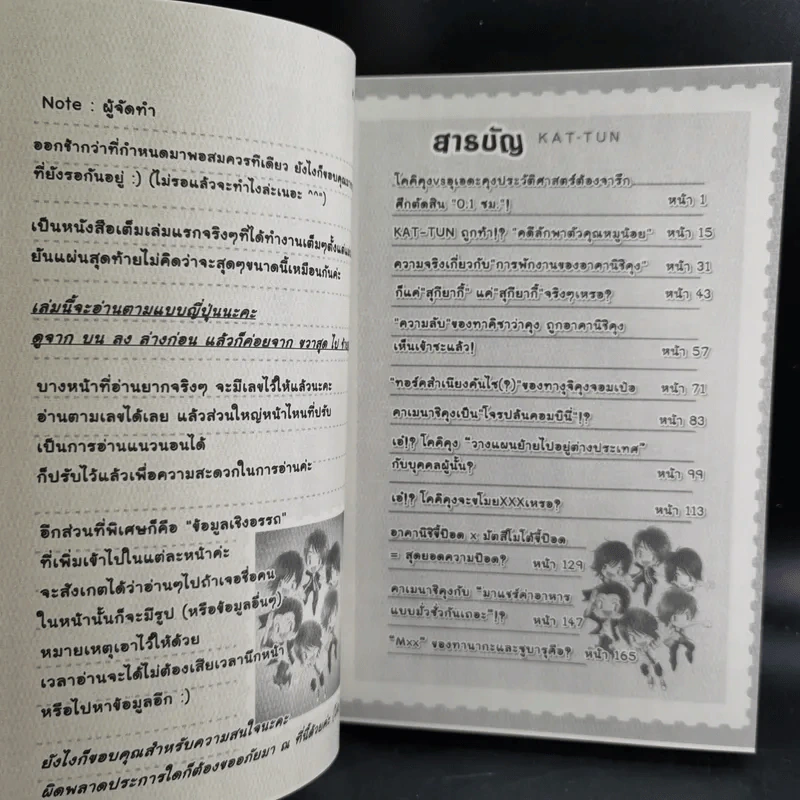 Note : ผู้จัดทำ
ออกช้ากว่าที่กำหนดมาพอสมควรทีเดียว ยังไงก็ขอบคุณ
ที่ยังรอกันอยู่ :) (ไม่รอแล้วจะทำไงล่ะเนอะ ^^")
เป็นหนังสือเต็มเล่มแรกจริงๆที่ได้ทำงานเต็มๆตั้งแต่
ยันแผ่นสุดท้ายไม่คิดว่าจะสุดๆขนาดนี้เหมือนกันค่ะ
เล่มนี้จะอ่านตามแบบญี่ปุ่นนะคะ
ดูจาก บน ลง ล่างก่อน แล้วก็ค่อยจาก ขวาสุด ไป
บางหน้าที่อ่านยากจริงๆ จะมีเลขไว้ให้แล้วนะคะ
อ่านตามเลขได้เลย แล้วส่วนใหญ่หน้าไหนที่ปรับ
เป็นการอ่านแนวนอนได้
ก็ปรับไว้แล้วเพื่อความสะดวกในการอ่านค่ะ
อีกส่วนที่พิเศษก็คือ "ข้อมูลเชิงอรรถ"
ที่เพิ่มเข้าไปในแต่ละหน้าค่ะ
จะสังเกตได้ว่าอ่านๆไปถ้าเจอชื่อคน
ในหน้านั้นก็จะมีรูป (หรือข้อมูลอื่นๆ)
หมายเหตุเอาไว้ให้ด้วย
เวลาอ่านจะได้ไม่ต้องเสียเวลานึกหน้า
หรือไปหาข้อมูลอีก :)
ยังไงก็ขอบคุณสำหรับความสนใจนะคะ
ผิดพลาดประการใดก็ต้องขออภัยมา ณ ที่นี้ด้วยค่ะ
สารบัญ KAT-TUN
โคคิคุงvsอุเอดะคุงประวัติศาสตร์ต้องจารึก
ศึกตัดสิน "0.1 ซม."! หน้า 1
KAT-TUN ถูกทำ!? "คดีลักพาตัวคุณหมูน้อย" หน้า 15
ความจริงเกี่ยวกับ"การพักงานของอาคานิชิคุง" หน้า 31
ก็แค่"สุกียากี้" แค่"สุกียากี้"จริงๆเหรอ? หน้า 43
"ความลับ"ของทาคิซาว่าคุง ถูกอาคานิชิคุง
เห็นเข้าซะแล้ว! หน้า 57
"ทอร์คสำเนียงคันไซ(?)"ของทางุจิคุงจอมเป๋อ หน้า 71
คาเมนาชิคุงเป็น"โจรปล้นคอมบินี่"!? หน้า 83
เอ๋!? โคคิคุง "วางแผนย้ายไปอยู่ต่างประเทศ"
กับบุคคลผู้นั้น? หน้า 99
เอ๋!? โคคิคุงจะขโมยXXXเหรอ? หน้า 113
อาคานิชิขี้ป๊อด x มัตสึโมโต้ขี้ป๊อด
= สุดยอดความป๊อด? หน้า 129
คาเมนาชิคุงกับ "มาแชร์ค่าอาหาร
แบบมั่วซั่วกันเถอะ"!? หน้า 147
"Mxx" ของทานากะและซูบารุคือ? หน้า 165